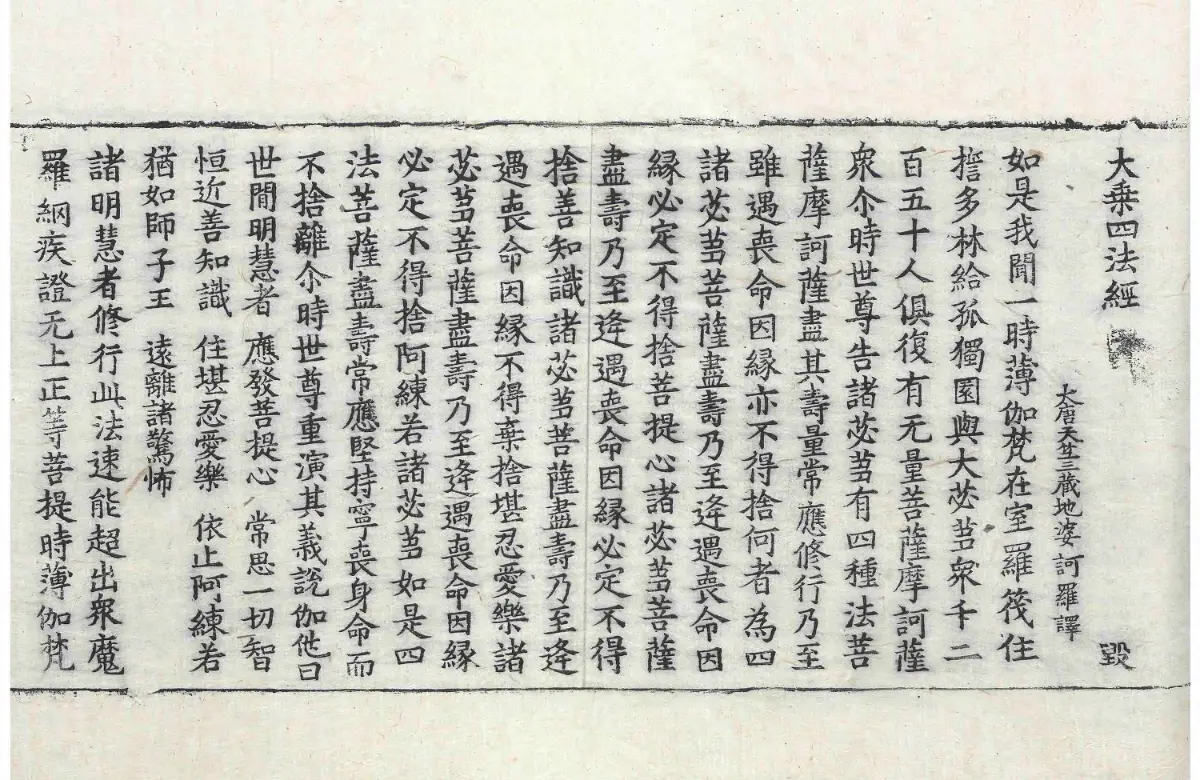 大乗四法經 毀
大唐天竺三藏地婆訶羅譯
如是我聞一時薄伽梵在室羅筏住
誓多林給孤獨園與大苾芻衆千二
百五十人俱復有无量菩薩摩訶薩
衆尒時世尊告諸苾芻有四種法菩
薩摩訶薩盡其壽量常應修行乃至
雖遇喪命因緣亦不得捨何者為四
諸苾芻菩薩盡壽乃至逄遇喪命因
緣必定不得捨菩提心諸苾芻菩薩
盡壽乃至逄遇喪命因緣必定不得
捨善知識諸苾芻菩薩盡壽乃至逄
遇喪命因緣不得棄捨堪忍愛樂諸
苾芻菩薩盡壽乃至逄遇喪命因緣
必定不得捨阿練若諸苾芻如是四
法菩薩盡壽常應堅持寧喪身命而
不捨離尒時世尊重演其義說伽他曰
世間明慧者 應發菩提心 常思一切智
恒近善知識 住堪忍愛樂 依止阿練若
猶如師子王 遠離諸驚怖
諸明慧者修行此法速能超出衆魔
羅網疾證无上正等菩提時薄伽梵